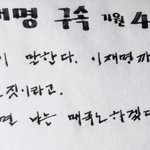 재명 구속 기원 4
이 말한다. 이재명까
짓이라고.
면 나는 매국노하겠다